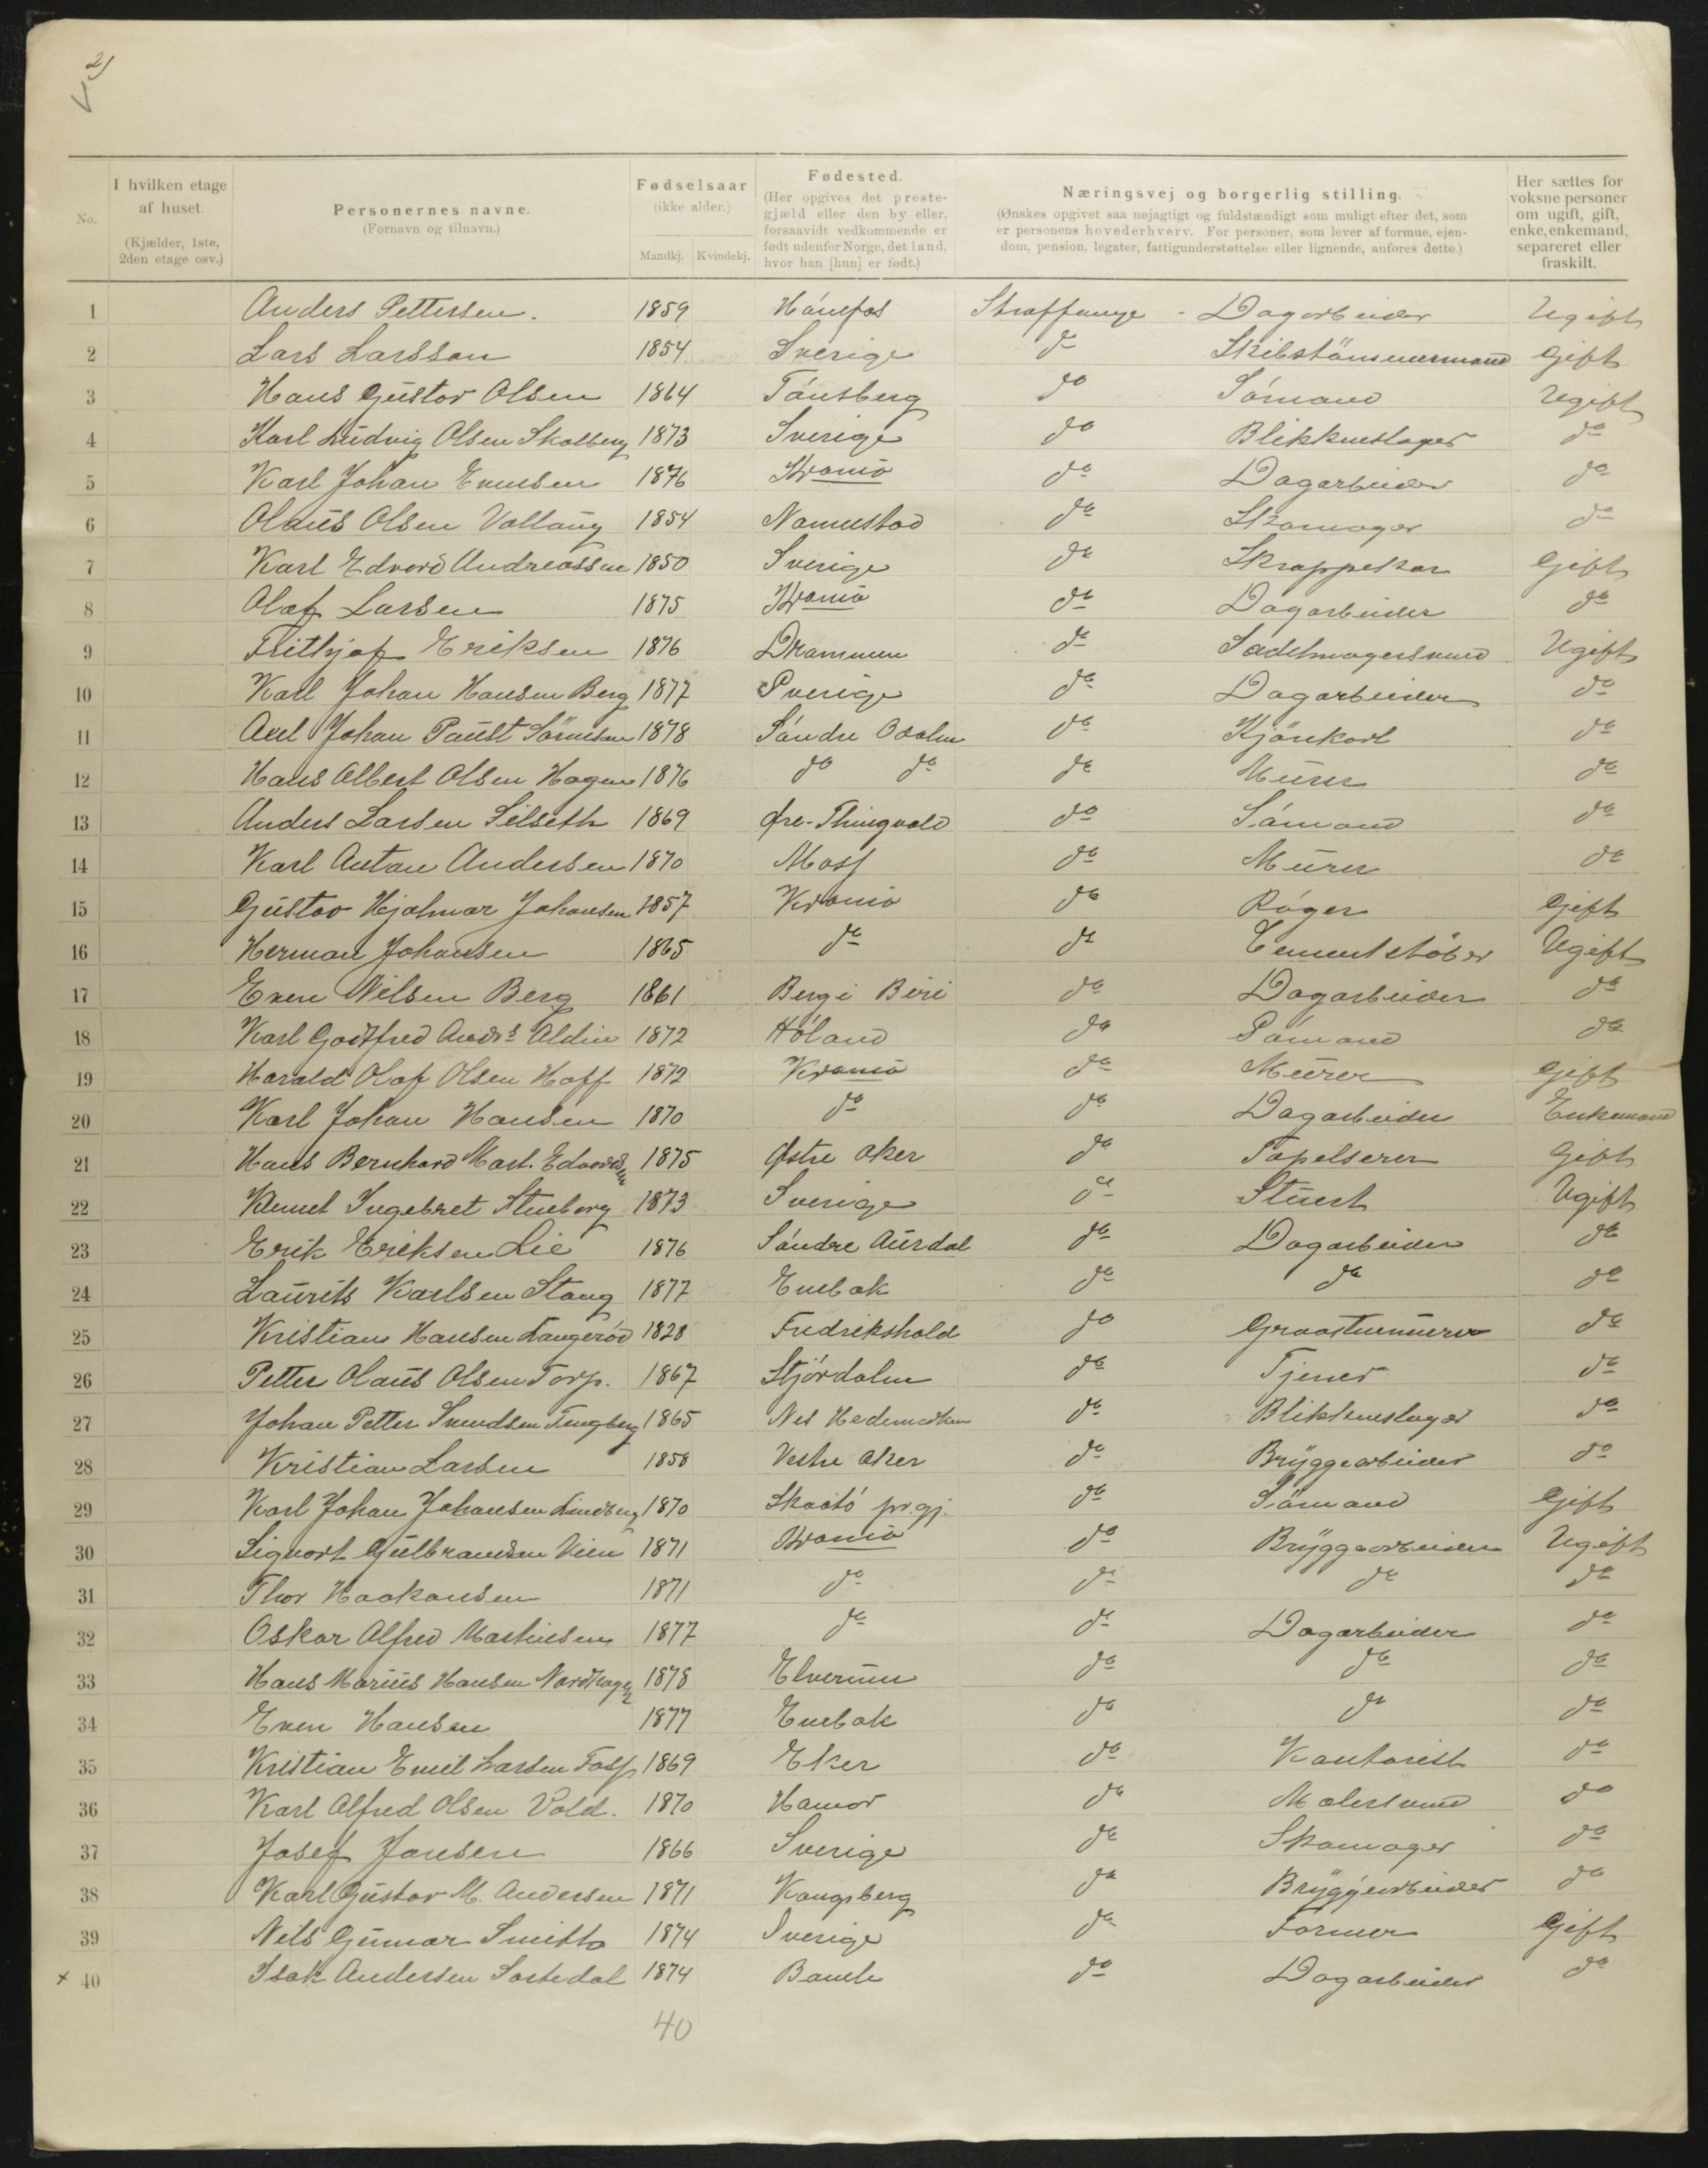 2)
No.
I hvilken etage af huset.
(Kjælder, 1ste, 2den etage osv.)
Personernes navne.
(Fornavn og tilnavn.)
Fødselsaar
(ikke alder.)
Mandkj. Kvindekj.
Fødested.
(Her opgives det preste-
gjæld eller den by eller,
forsaavidt vedkommende er
født udenfor Norge, det land,
hvor han [hun] er født.)
Næringsvej og borgerlig stilling.
(Ønskes opgivet saa nøjagtigt og fuldstændigt som muligt efter det, som
er personens hovederhverv. For personer, som lever af formue, ejen-
dom, pension, legater, fattigunderstøttelse eller lignende, anføres dette.)
Her sættes for
voksne personer
om ugift, gift,
enke, enkemand,
separeret eller
fraskilt.
1 Anders Pettersen. 1859 Hónefos Straffange - Dagarbeider Ugift
2 Lars Larsson 1854 Sverige do Skibstömmermand Gift
3 Hans Gustav Olsen 1864 Tónsberg do Sómand Ugift
4 Karl Ludvig Olsen Skalberg 1873 Sverige do Blikkenslager do
5 Karl Johan Evensen 1876 Krania do Dagarbeider do
6 Olaus Olsen 1854 Namsstad do Skomager do
7 Karl Edvard Andreassen 1850 Sverige do Skrappekar Gift
8 Olaf Larsen 1875 Krania do Dagarbeider do
9 Frithjof Eriksen 1876 Drammen do Sadelmagersvend Ugift
10 Karl Johan Hansen Berg 1877 Sverige do Dagarbeider do
11 Axel Johan Paust Sörensen 1878 Sóndre Odalen do Kjörekarl do
12 Hans Albert Olsen Hagen 1876 do do do Murer do
13 Anders Larsen Silseth 1869 Øre-Thingvold do Sómand do
14 Karl Anton Andersen 1870 Moss do Murer do
15 Gustav Hjalmar Johansen 1857 Krania do Róger Gift
16 Herman Johansen 1865 do do Cementstöber Ugift
17 Even Nilsen Berg 1861 Berg i Biri do Dagarbeider do
18 Karl Godtfred Andrs Aldin 1872 Hóland do Sómand do
19 Harald Olaf Olsen Hoff 1872 Krania do Murer Gift
20 Karl Johan Hansen 1870 do do Dagarbeider Enkemand
21 Hans Bernhard Mart. Edvardsen 1875 Østre Aker do Tapetserer Gift
22 Klemet Ingebret Stueborg 1873 Sverige do Stuert Ugift
23 Erik Eriksen Lie 1876 Sóndre Aurdal do Dagarbeider do
24 Laurits Karlsen Stang 1877 Enebak do do do
25 Kristian Hansen Langeröd 1828 Fredrikshald do Graastensmurer do
26 Petter Olaus Olsen Torp. 1867 Stjórdalen do Tjener do
27 Johan Petter Svendsen 1865 Nes Hedemarken do Blikkenslager do
28 Kristian Larsen 1858 Vestre Aker do Bryggearbeider do
29 Karl Johan Johansen Lindberg 1870 Skaató pr.gj. do Sömand Gift
30 Sigvart Gulbrandsen Vien 1871 Krania do Bryggearbeider Ugift
31 Thor Haakonsen 1871 do do do do
32 Oskar Alfred Mathisen 1877 do do Dagarbeider do
33 Hans Marius Hansen Nordhagen 1878 Elverum do do do
34 Even Hansen 1877 Enebak do do do
35 Kristian Emil Larsen Foss 1869 Eker do Kontorist do
36 Karl Alfred Olsen Vold. 1870 Hamar do Malersvend do
37 Josef Jansen 1866 Sverige do Skomager do
38 Karl Gustav M. Andersen 1871 Kongsberg do Bryggearbeider do
39 Nils Gunnar Smith 1874 Sverige do Former Gift
x 40 Isak Andersen Sartedal 1874 Bamle do Dagarbeider do
40